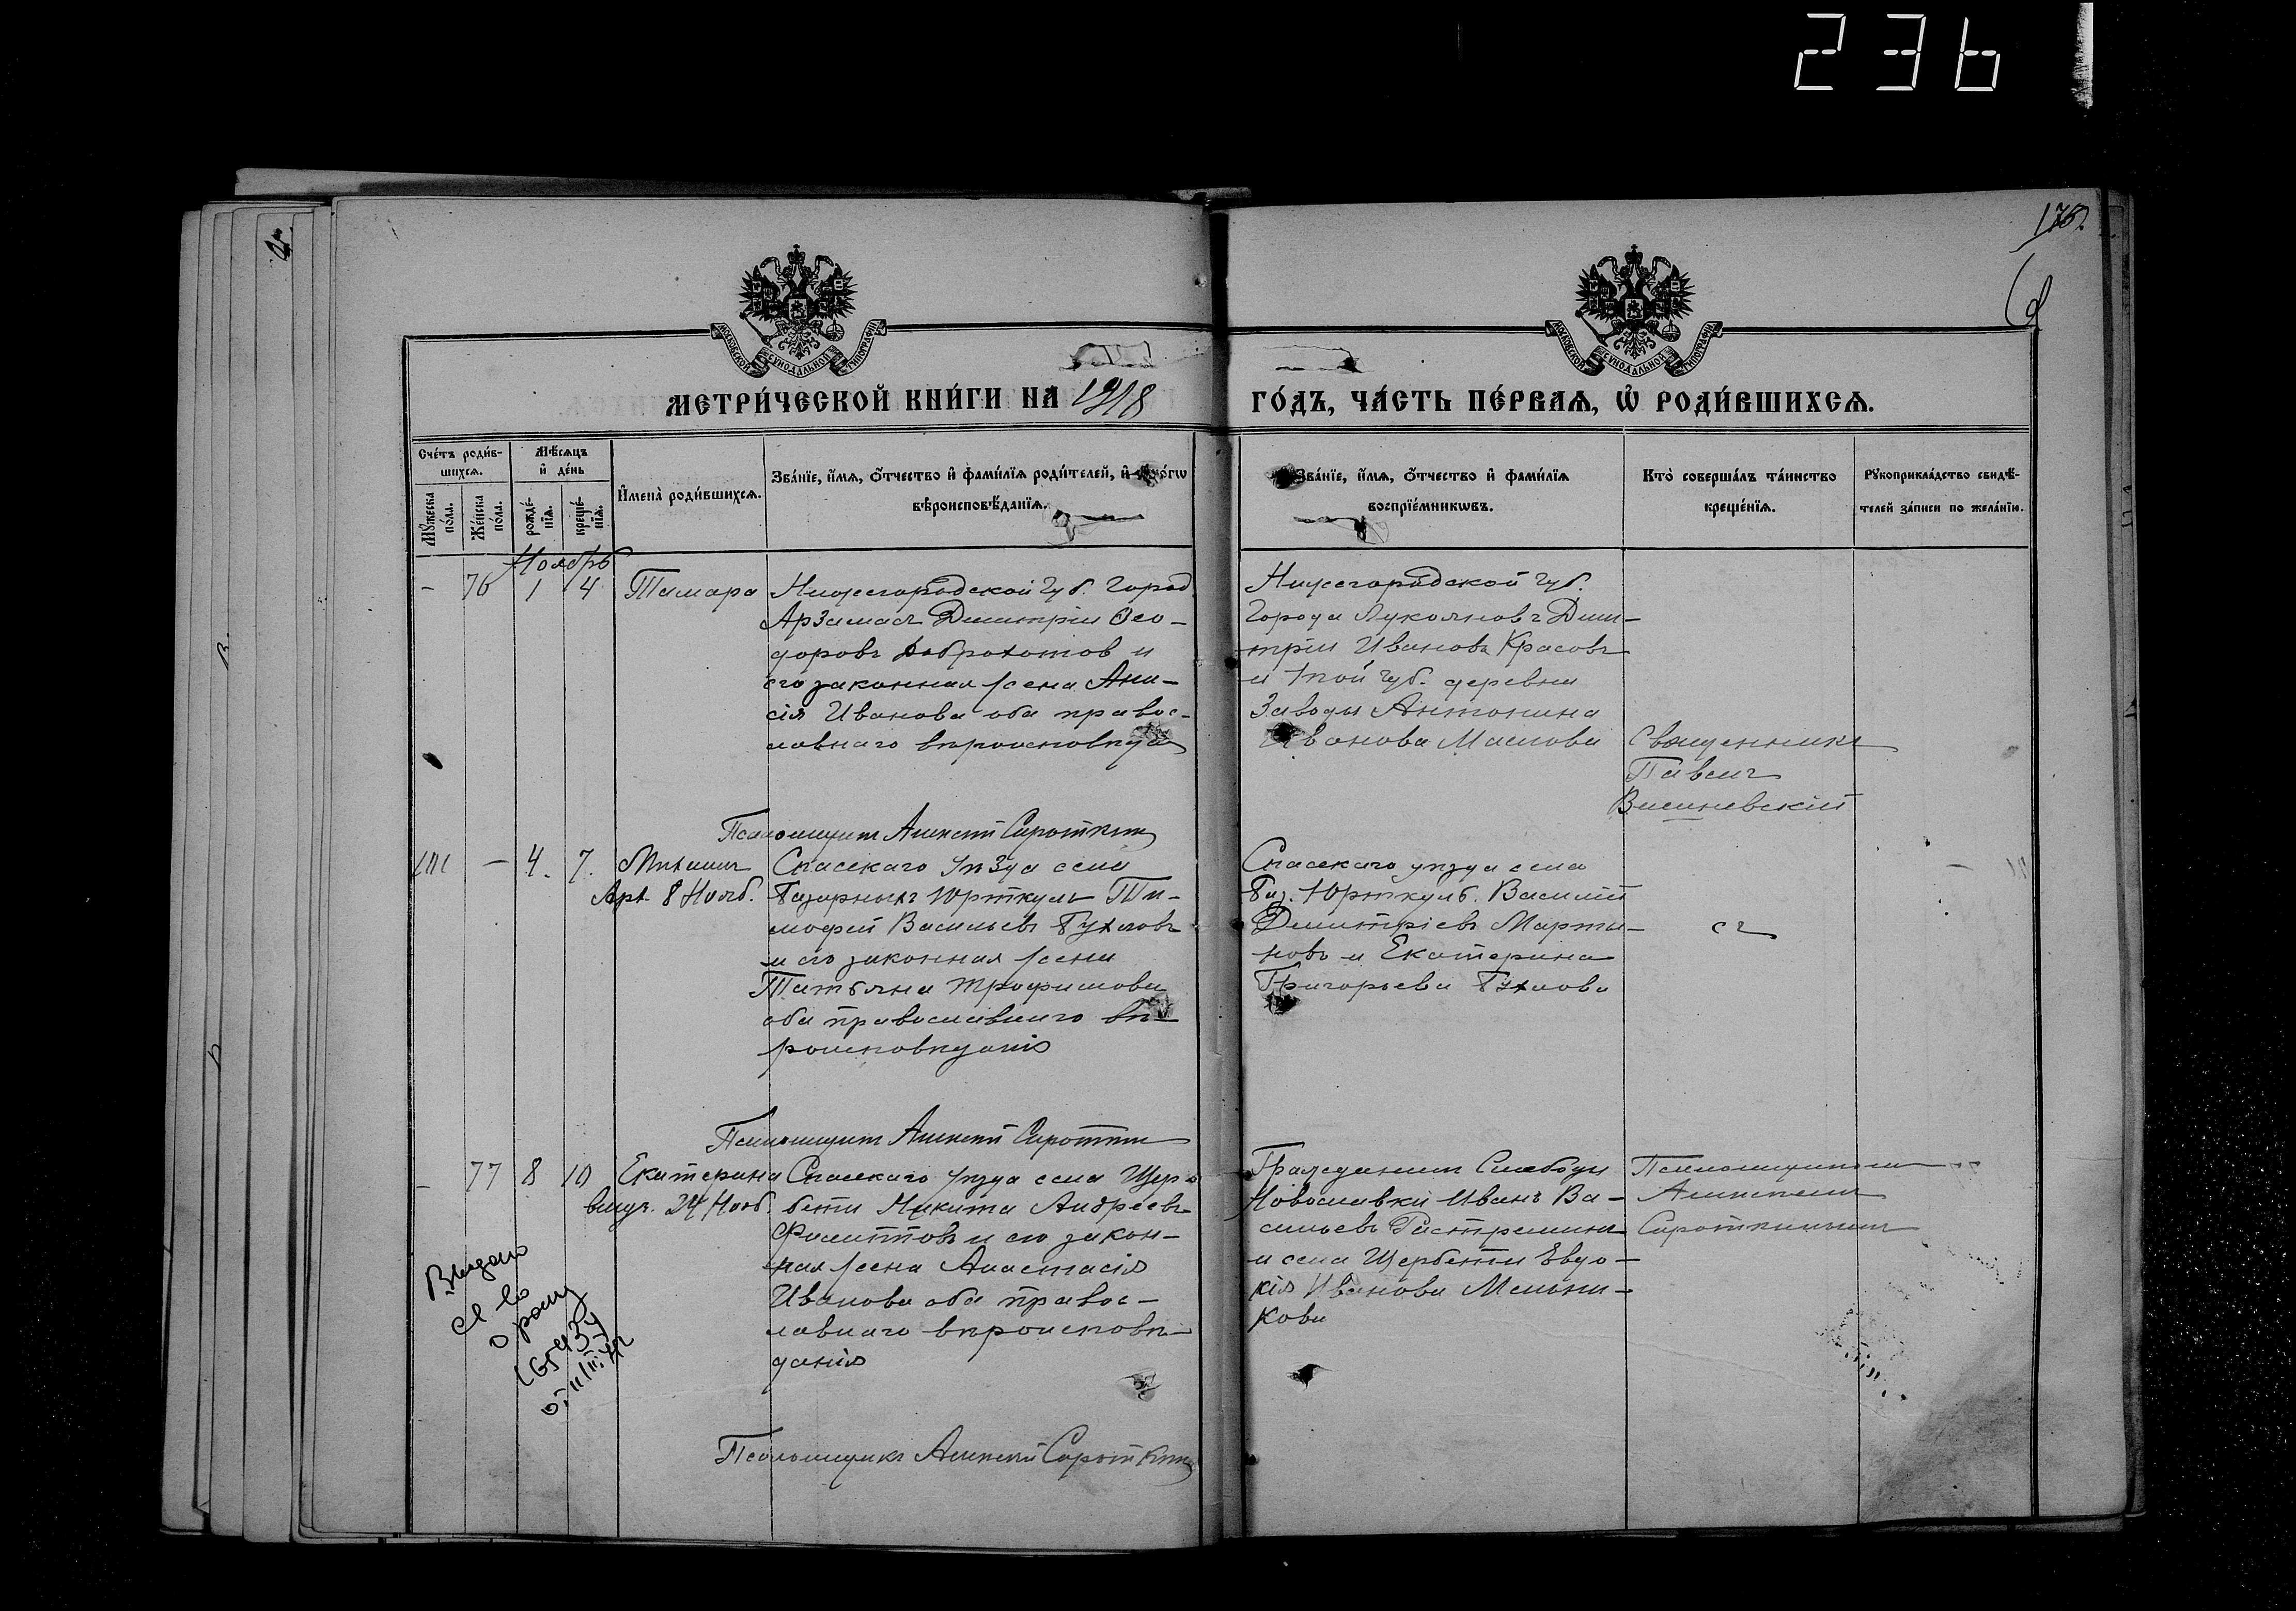 236
176
МОСКОВСКОЙ СѴНОДАЛЬНОЙ ТИПОГРАФІИ
МОСКОВСКОЙ СѴНОДАЛЬНОЙ ТИПОГРАФІИ
МЕТРИ́ЧЕСКОЙ КНИ́ГИ НА 1918
ГО́ДЪ, ЧА́СТЬ ПЕ́РВАѦ, Ѽ РОДИ́ВШИХСѦ.
Сче́тъ роди́вшихсѧ.
Мꙋ́жеска по́ла.
Же́нска по́ла.
Мѣ́сѧцъ и҆ де́нь
рожде́нїѧ.
креще́нїѧ.
И҆мена̀ роди́вшихсѧ.
Зва́нїе, и҆́мѧ, о҆́тчество и҆ фами́лїѧ роди́телей, и҆
вѣроисповѣ́данїѧ.
Зва́нїе, и҆́мѧ, о҆́тчество и҆ фами́лїѧ
воспрїе́мникѡвъ.
Кто̀ соверша́лъ та́инство
креще́нїѧ.
Рꙋкоприкла́дство свидѣ́-
телей за́писи по жела́нїю.
Ноябрь
– 76 1 4 Тамара
Нижегородской Губ. Город
Арзамасъ Димитрій Ѳео-
доровъ Доброхотов и
его законная жена Ани-
сія Иванова оба правос-
лавнаго вѣроисповѣда
Нижегородской Губ.
Города Лукояновъ Дими-
трій Ивановъ Красовъ
и той Губ. деревни
Заводы Антонина
Иванова Маслова
Священникъ
Павелъ
Вишневскій
Псаломщикъ Алексѣй Сироткинъ
– 4. 7. Михаилъ
Арх. 8 Нояб.
Спасскаго уѣзда села
Базарныхъ Юрткуль Ти-
мофей Васильевъ Бухловъ
и его законная жена
Татьяна Трофимова
оба православнаго вѣ-
роисповѣданія
Спасскаго уѣзда села
Баз. Юрткуль. Василій
Димитріевъ Марты-
новъ и Екатерина
Григорьева Бухлова
Псаломщикъ Алексѣй Сироткинъ
– 77 8 10 Екатерина
влмуч. 24 Нояб.
Спасскаго уѣзда села Щер-
бети Никита Андреевъ
Филиппов и его закон-
ная жена Анастасія
Иванова оба правос-
лавнаго вѣроисповѣ-
данія
Гражданинъ Слободы
Новославки Иванъ Ва-
сильевъ
и села Щербети Евдо-
кія Иванова Мельни-
кова
Псаломщикомъ
Алексѣемъ
Сироткинымъ
Выдано
св во
о рожд
Псаломщикъ Алексѣй Сироткинъ